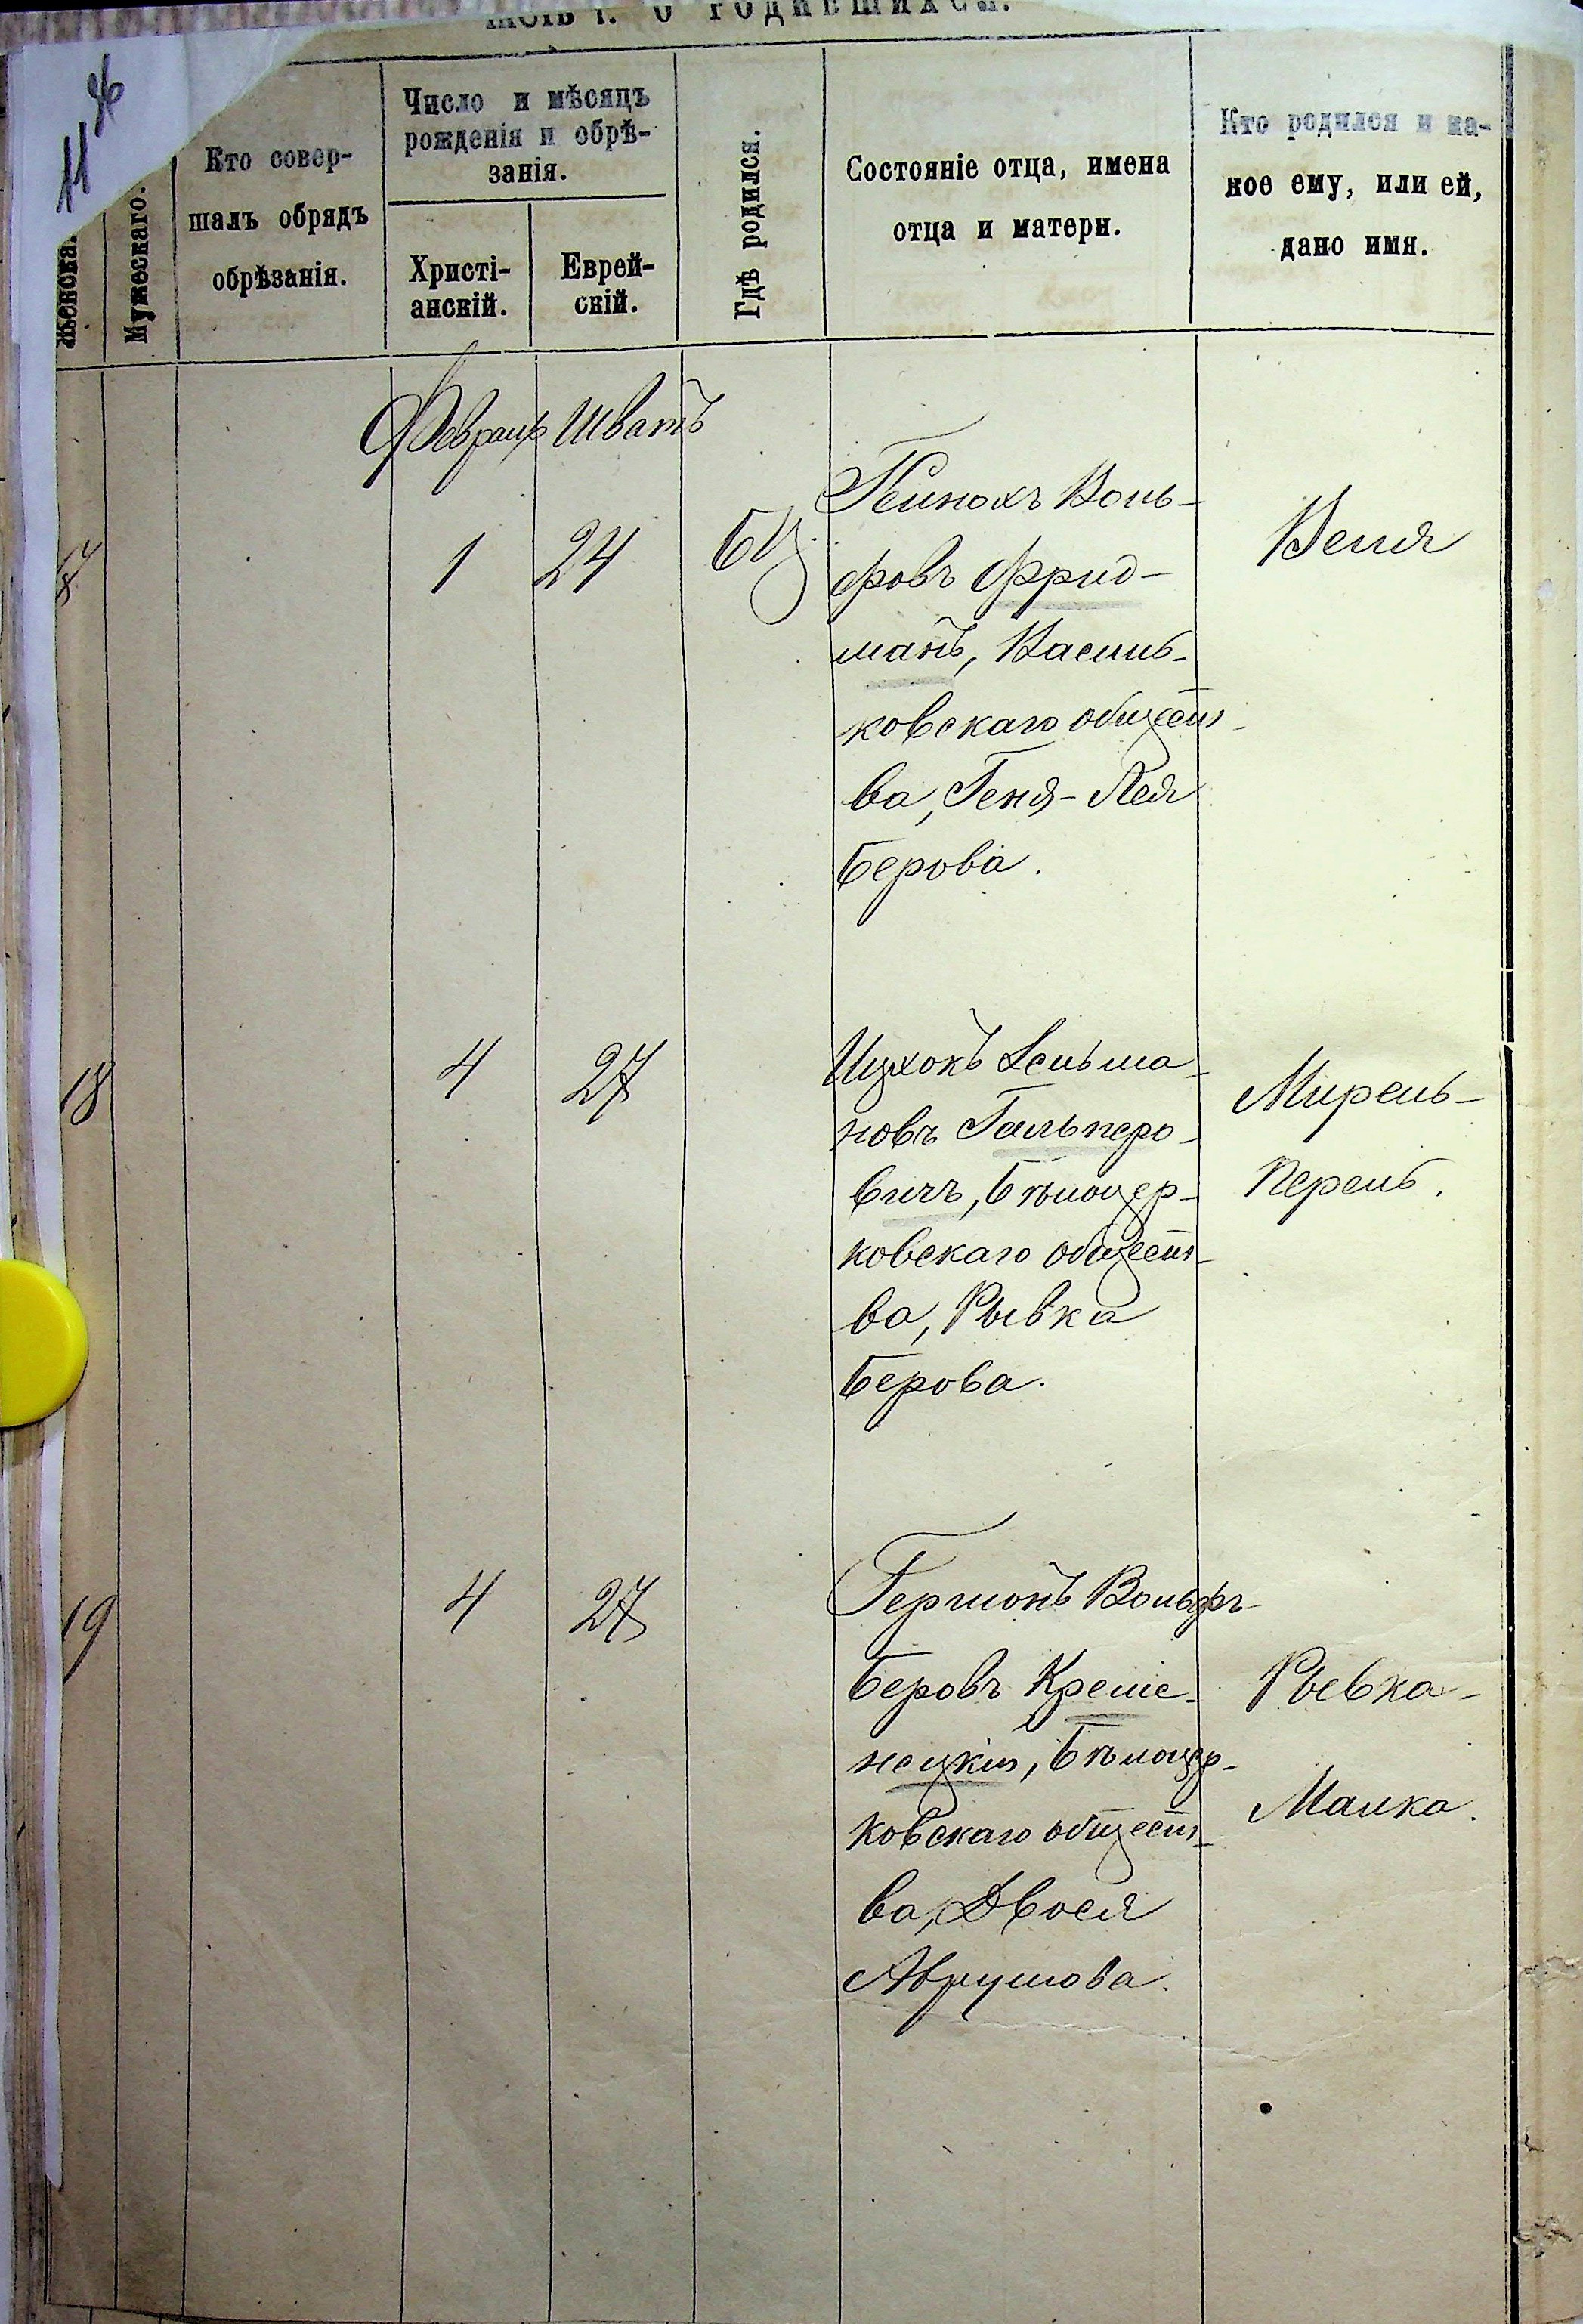 О РОДИВШИХСЯ.
11
Женска.
Мужескаго.
Кто совер-
шалъ обрядъ
обрѣзанія.
Число и мѣсяцъ
рожденія и обрѣ-
занія.
Христі-
анскій.
Еврей-
скій.
Гдѣ родился.
Состояніе отца, имена
отца и матери.
Кто родился и ка-
кое ему, или ей,
дано имя.
Февраль Шватъ
17
1
24
БЦ.
Гейнохъ Воль-
фовъ Фрид-
манъ, Василь-
ковскаго общест-
ва, Геня-Лея
Берова.
Веля
18
4
27
Ицхокъ Зельма-
новъ Гальперо-
вичъ, Бѣлоцер-
ковскаго общест-
ва, Рывка
Берова.
Мирель-
Перель.
19
4
27
Гершонъ Вольфъ-
Беровъ Креме-
нецкій, Бѣлоцер-
ковскаго общест-
ва, Двося
Аврумова.
Рывка-
Малка.